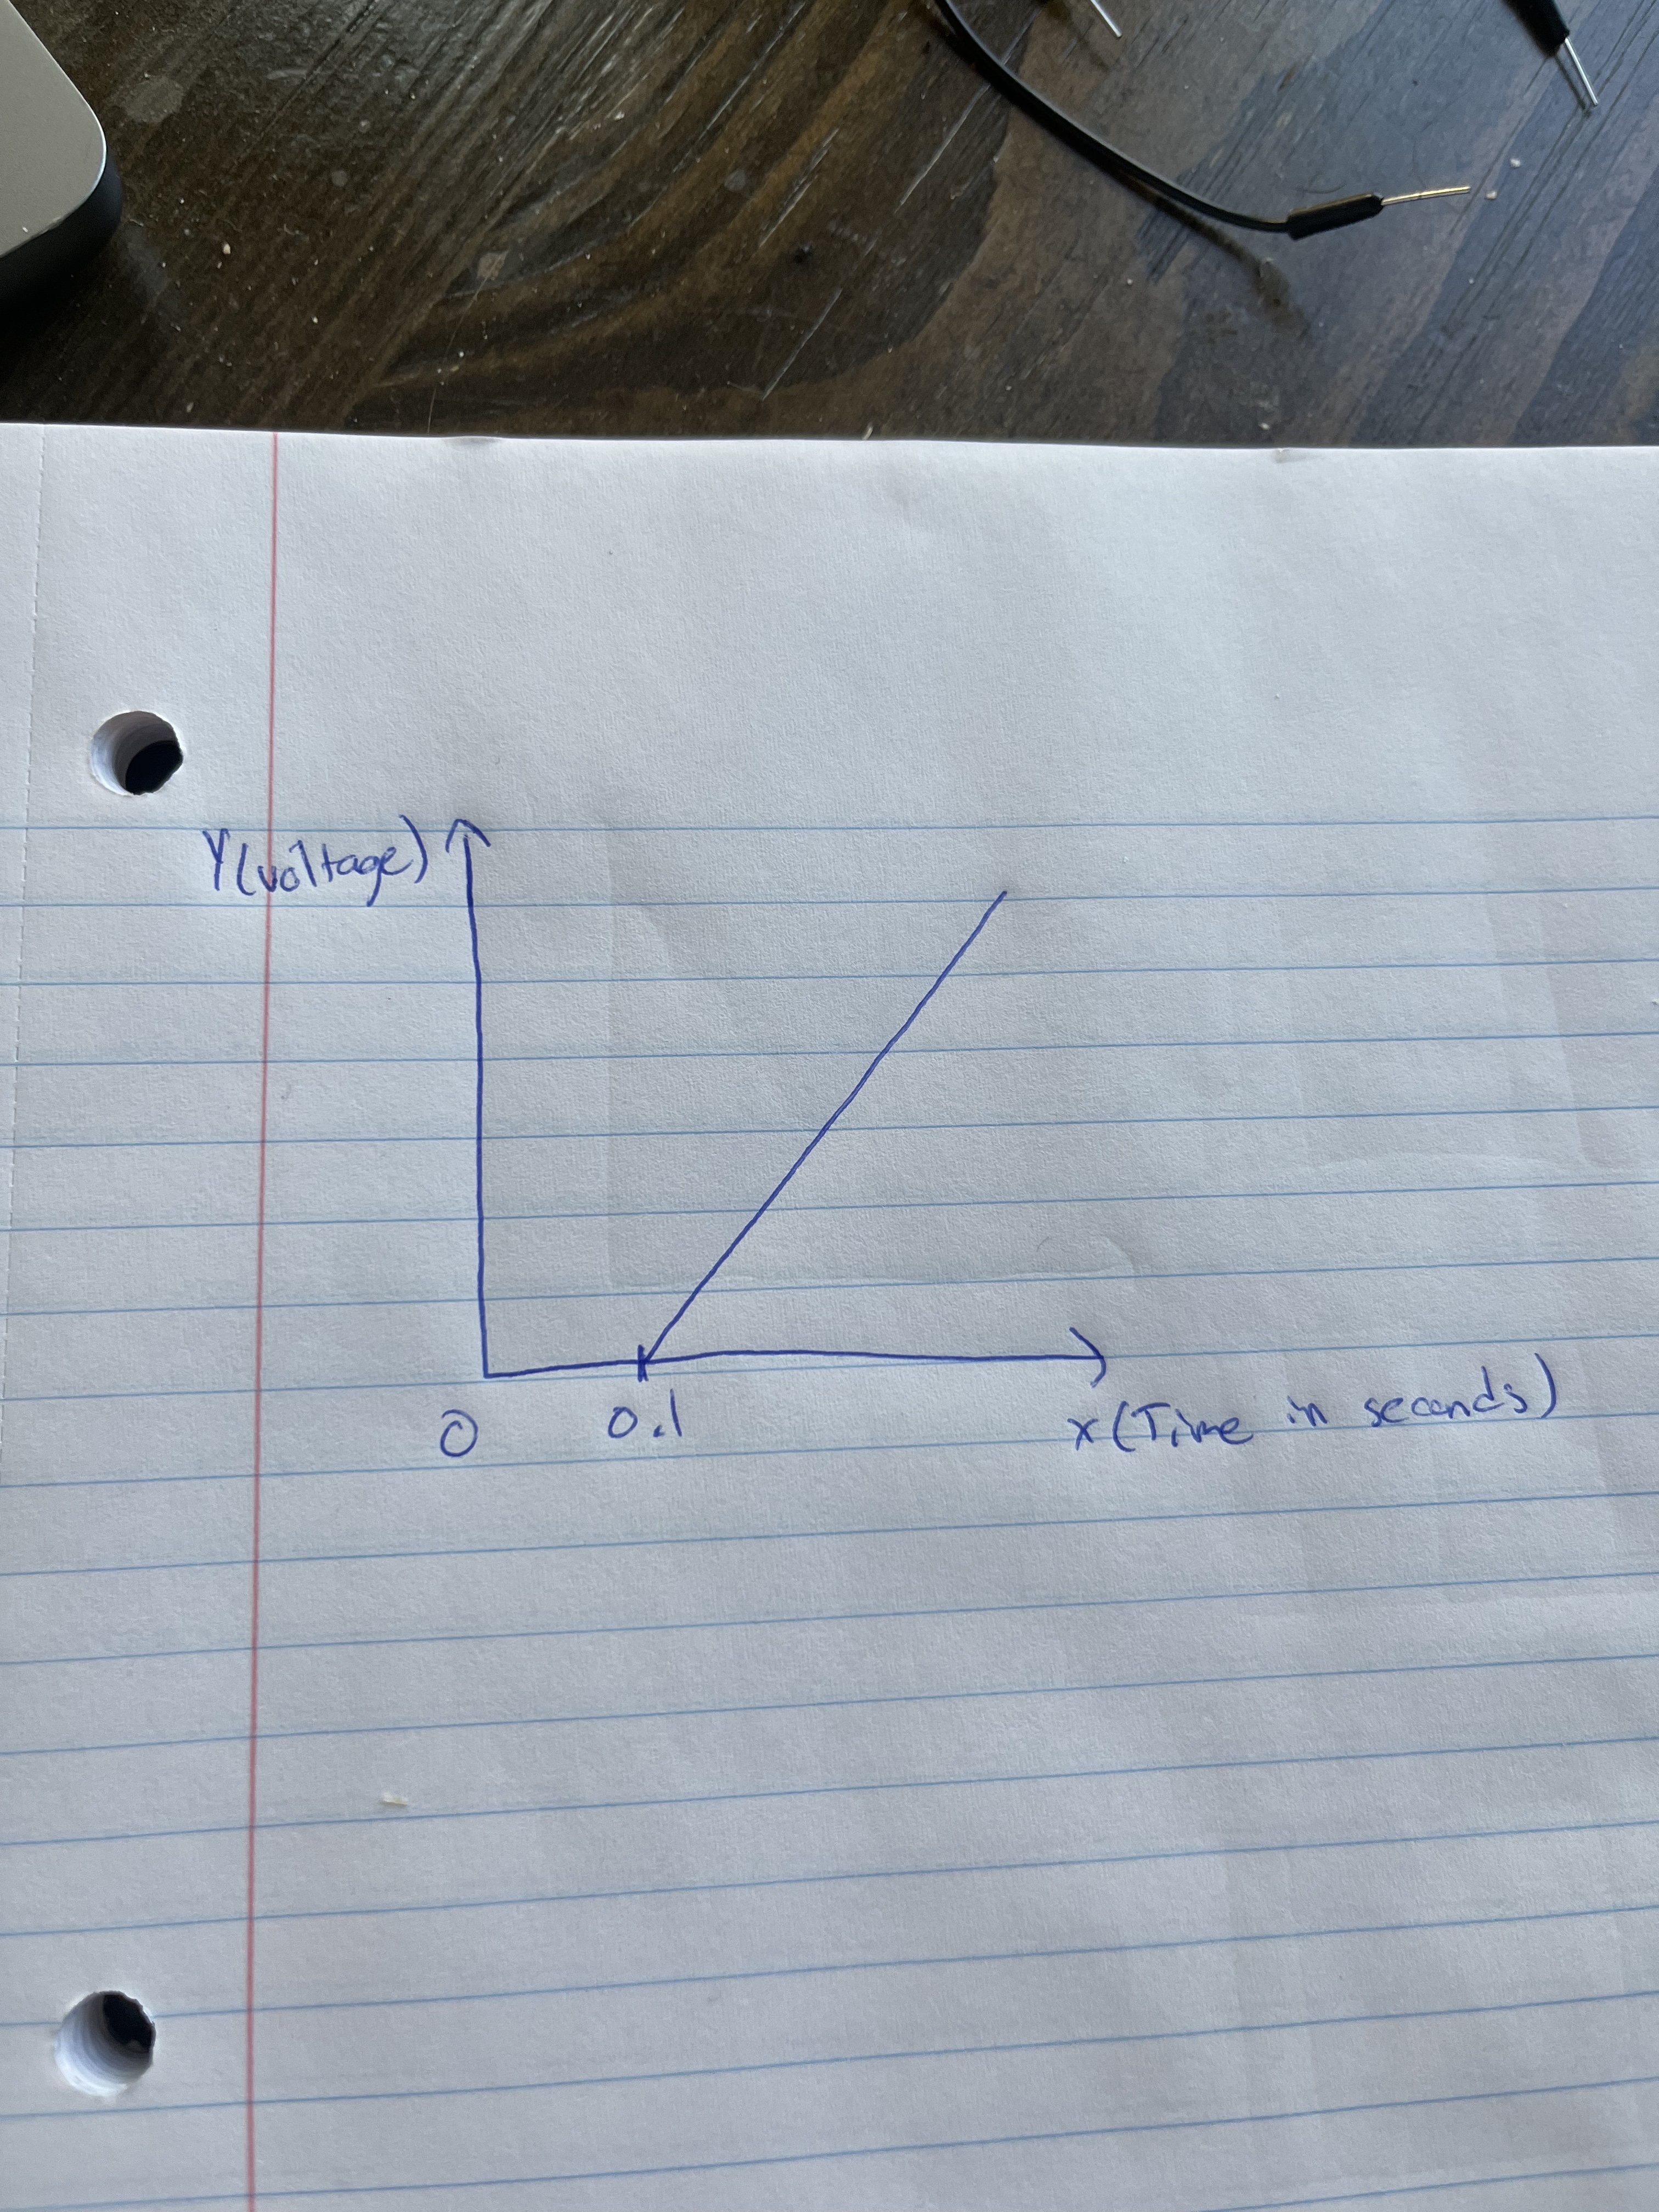 Y(voltage)
0
0.1
x(Time in seconds)